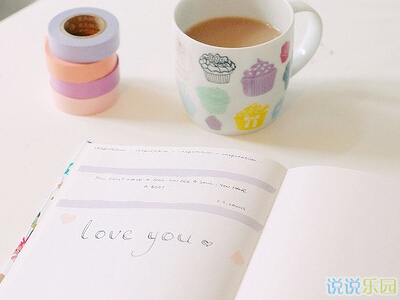 inspiration - inspiration - inspiration - inspiration
YOU DON'T HAVE A SOUL. YOU ARE A SOUL. YOU HAVE
A BODY
C.S. LEWIS
love you ♡
说说乐园